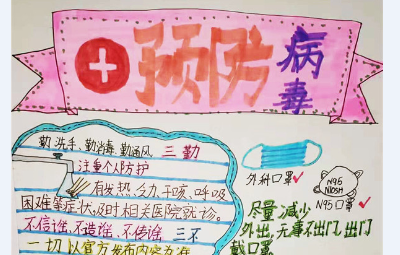 预防病毒
勤洗手、勤消毒、勤通风 三勤
注重个人防护
有发热、乏力、干咳、呼吸
困难等症状,及时相关医院就诊。
不信谣、不造谣、不传谣 三不
一切以官方发布内容为准
外科口罩
N95
NIOSH
N95口罩
尽量减少
外出,无事不出门,出门
戴口罩。